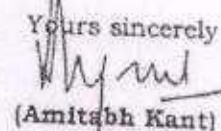 Yours sincerely
(Amitabh Kant)